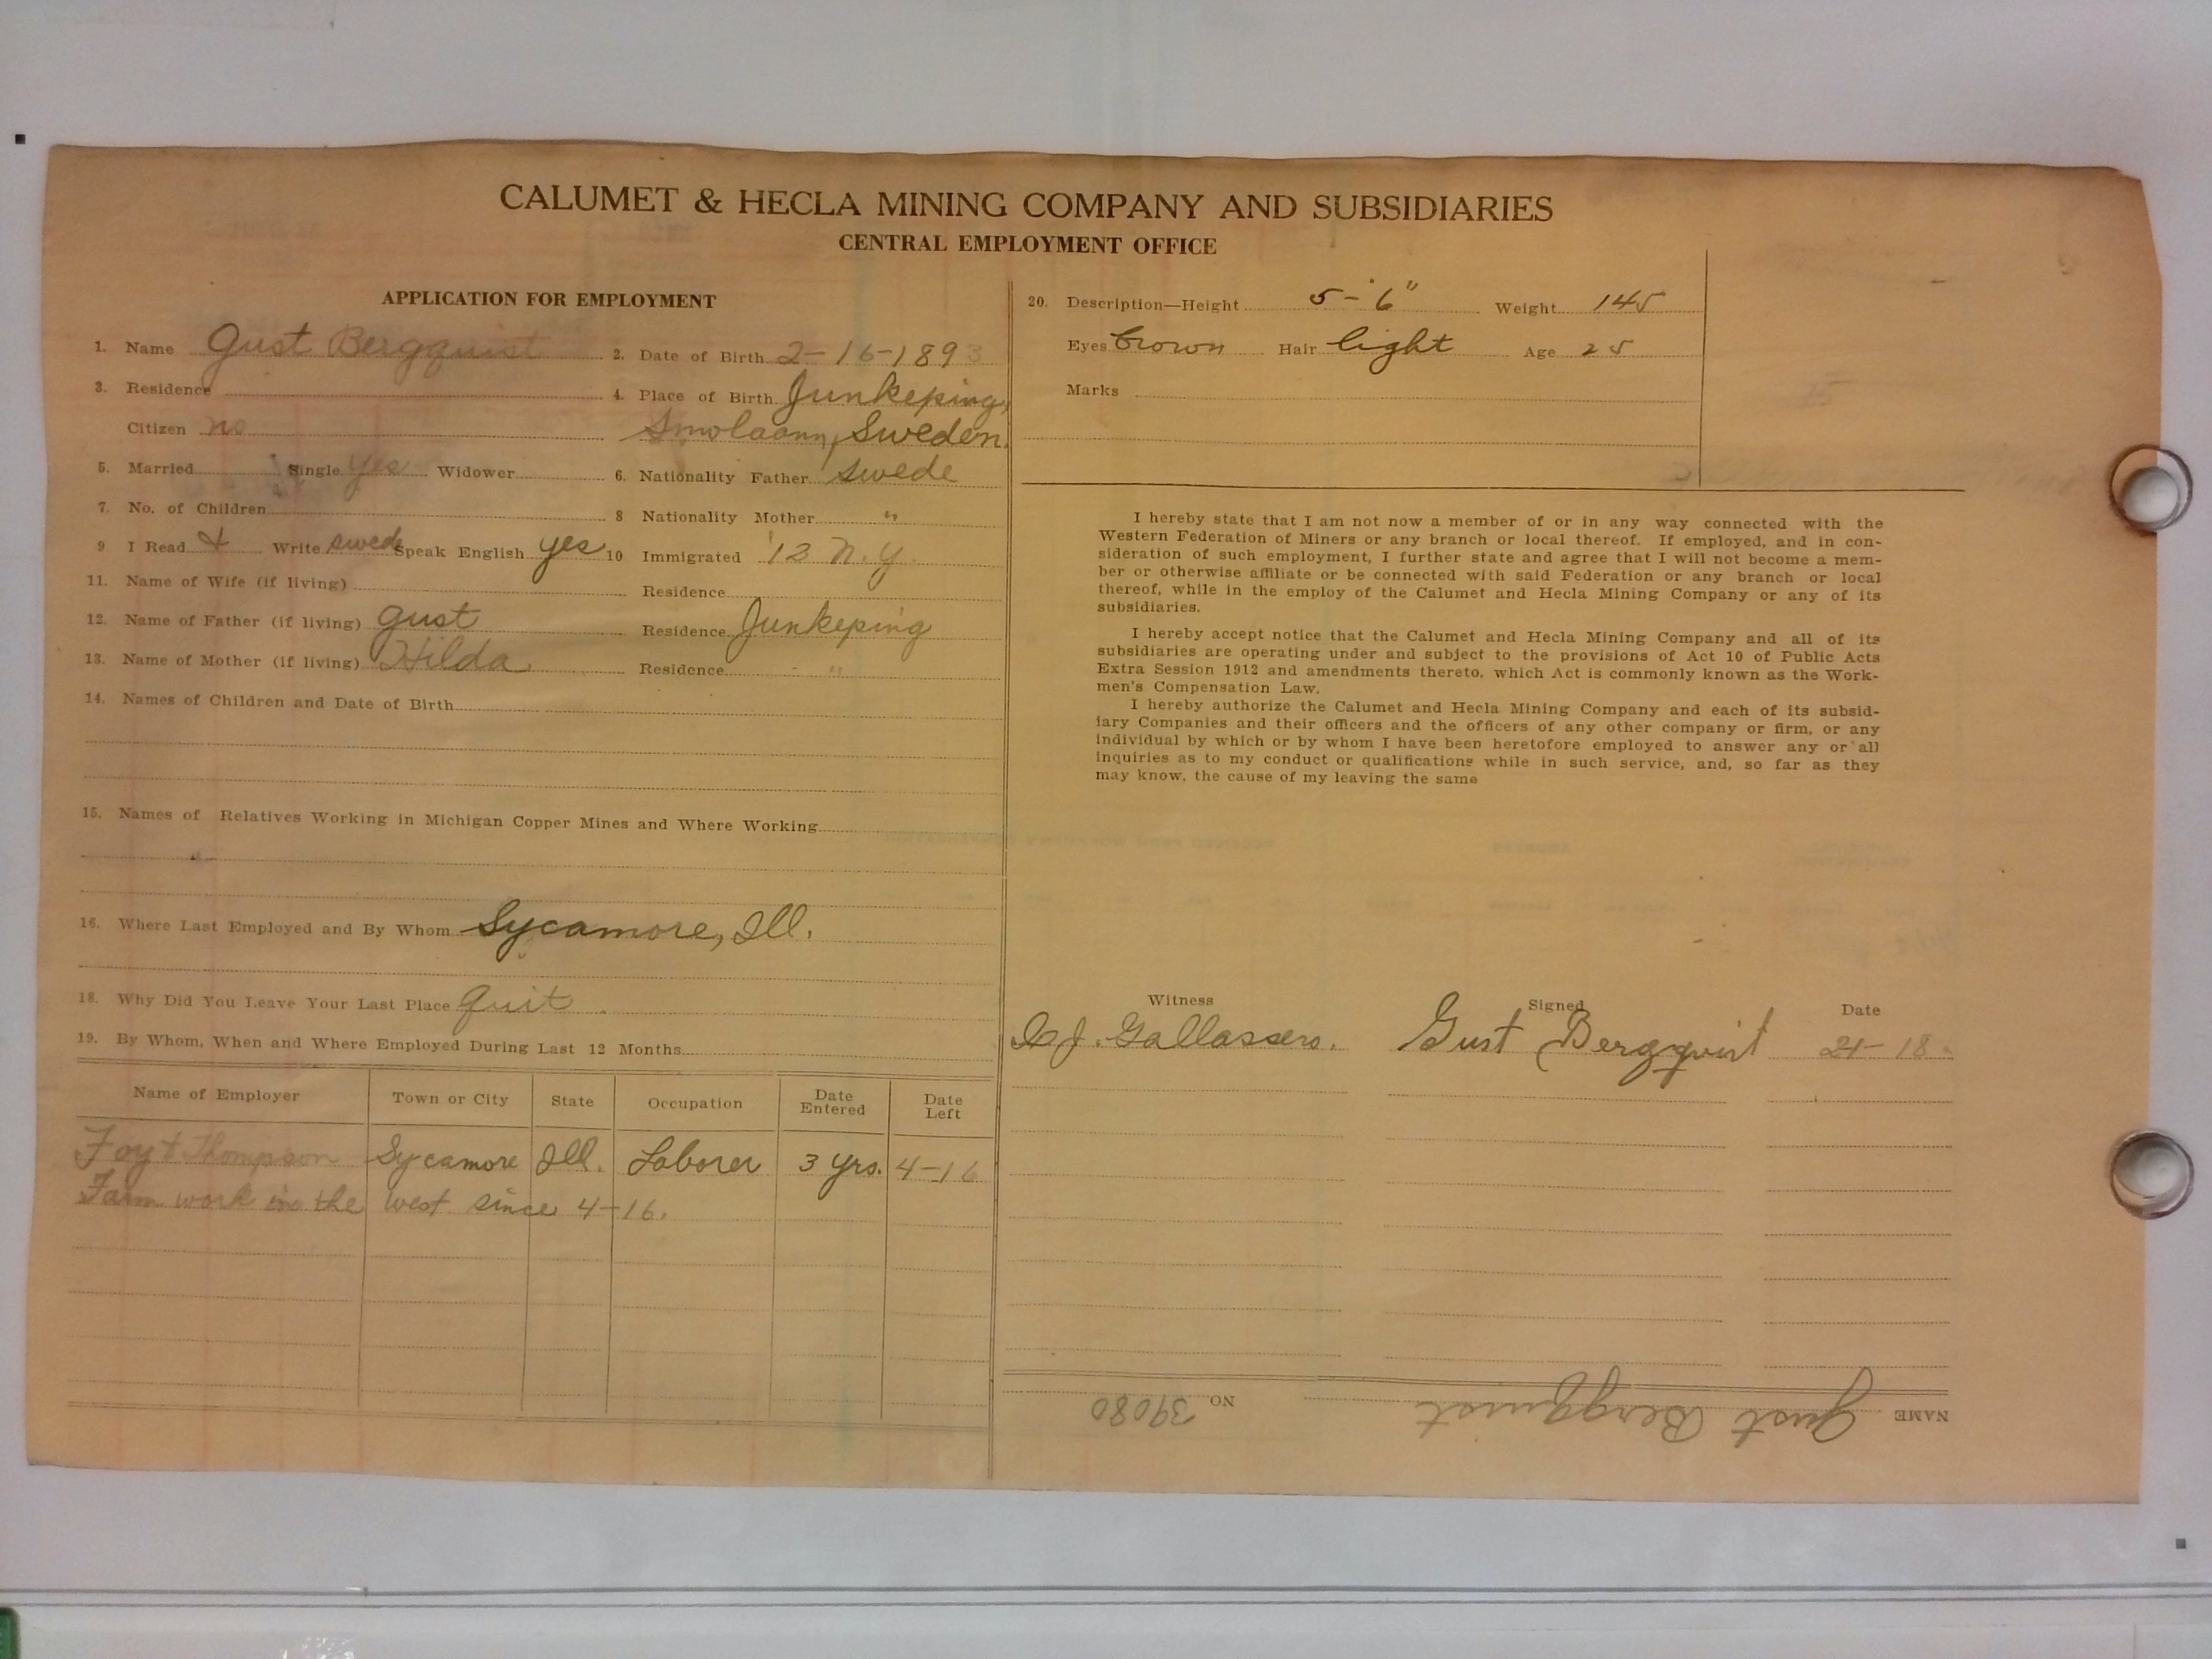 CALUMET & HECLA MINING COMPANY AND SUBSIDIARIES
CENTRAL EMPLOYMENT OFFICE
APPLICATION FOR EMPLOYMENT
1. Name Gust Bergquist 2. Date of Birth 2-16-1893
3. Residence 4. Place of Birth Junkeping,
Citizen no Smolaann, Sweden.
5. Married Single yes Widower 6. Nationality Father swede
7. No. of Children 8 Nationality Mother "
9 I Read & Write swede Speak English yes 10 Immigrated '13 N.Y.
11. Name of Wife (if living) Residence
12. Name of Father (if living) Gust Residence Junkeping
13. Name of Mother (if living) Hilda Residence "
14. Names of Children and Date of Birth
15. Names of Relatives Working in Michigan Copper Mines and Where Working
16. Where Last Employed and By Whom Sycamore, Ill.
18. Why Did You Leave Your Last Place Quit
19. By Whom, When and Where Employed During Last 12 Months
Name of Employer Town or City State Occupation Date Entered Date Left
Foy & Thompson Sycamore Ill. Laborer 3 yrs. 4-16
Farm work in the west since 4-16.
20. Description—Height 5-6" Weight 145
Eyes brown Hair light Age 25
Marks
I hereby state that I am not now a member of or in any way connected with the
Western Federation of Miners or any branch or local thereof. If employed, and in con-
sideration of such employment, I further state and agree that I will not become a mem-
ber or otherwise affiliate or be connected with said Federation or any branch or local
thereof, while in the employ of the Calumet and Hecla Mining Company or any of its
subsidiaries.
I hereby accept notice that the Calumet and Hecla Mining Company and all of its
subsidiaries are operating under and subject to the provisions of Act 10 of Public Acts
Extra Session 1912 and amendments thereto, which Act is commonly known as the Work-
men's Compensation Law.
I hereby authorize the Calumet and Hecla Mining Company and each of its subsid-
iary Companies and their officers and the officers of any other company or firm, or any
individual by which or by whom I have been heretofore employed to answer any or all
inquiries as to my conduct or qualifications while in such service, and, so far as they
may know, the cause of my leaving the same
Witness Signed Date
J. Gallassero. Gust Bergqvist 18
NAME Gust Bergquist NO 39080